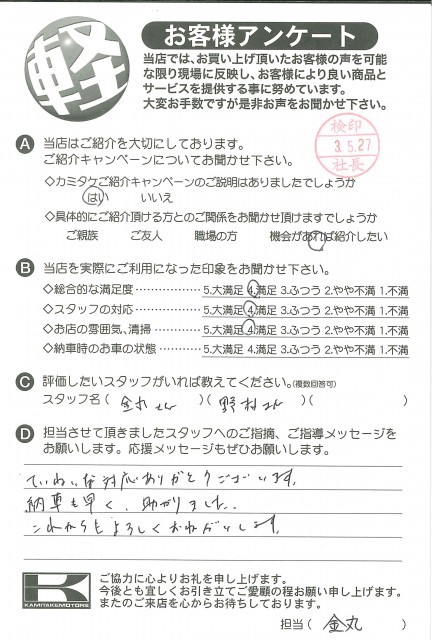 軽
お客様アンケート
当店では、お買い上げ頂いたお客様の声を可能
な限り現場に反映し、お客様により良い商品と
サービスを提供する事に努めています。
大変お手数ですが是非お声をお聞かせ下さい。
検印
3.5.27
社長
A 当店はご紹介を大切にしております。
ご紹介キャンペーンについてお聞かせ下さい。
◇カミタケご紹介キャンペーンのご説明はありましたでしょうか
はい いいえ
◇具体的にご紹介頂ける方とのご関係をお聞かせ頂けますでしょうか
ご親族 ご友人 職場の方 機会があれば紹介したい
B 当店を実際にご利用になった印象をお聞かせ下さい。
◇総合的な満足度 …………… 5.大満足 4.満足 3.ふつう 2.やや不満 1.不満
◇スタッフの対応 …………… 5.大満足 4.満足 3.ふつう 2.やや不満 1.不満
◇お店の雰囲気、清掃 ………… 5.大満足 4.満足 3.ふつう 2.やや不満 1.不満
◇納車時のお車の状態 ………… 5.大満足 4.満足 3.ふつう 2.やや不満 1.不満
C 評価したいスタッフがいれば教えてください。(複数回答可)
スタッフ名 ( 金丸さん )( 野村さん )( )
D 担当させて頂きましたスタッフへのご指摘、ご指導メッセージを
お願いします。応援メッセージもぜひお願いします。
ていねいな対応ありがとうございます。
納車も早く、助かりました。
これからもよろしくおねがいします。
K
KAMITAKEMOTORS
ご協力に心よりお礼を申し上げます。
今後とも宜しくお引き立てご愛顧の程お願い申し上げます。
またのご来店を心からお待ちしております。
担当 ( 金丸 )